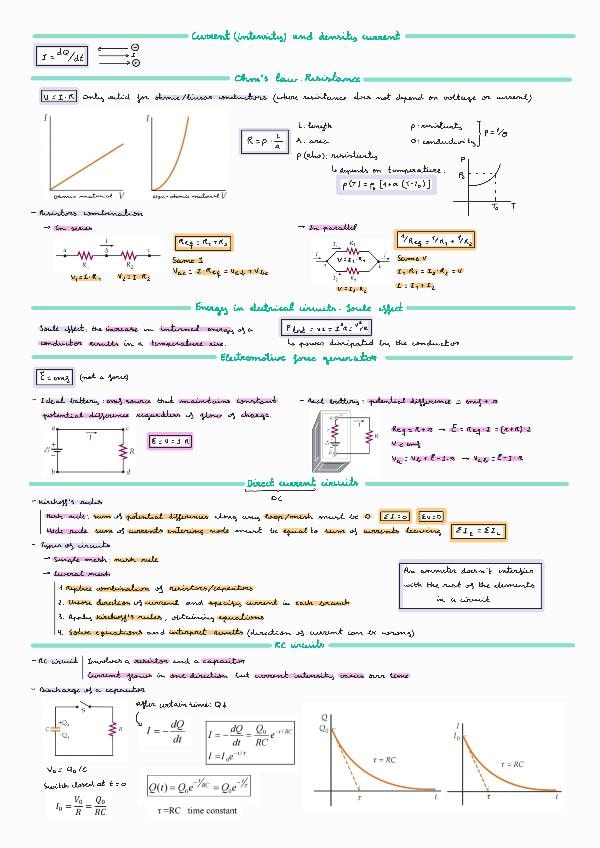 Current (intensity) and density current
I = dQ/dt
I
Ohm's law. Resistance
V = I · R Only valid for ohmic/linear conductors (where resistance does not depend on voltage or current)
I
V
Ohmic material
I
V
Non-ohmic material
R = ρ · L/A
L: length
A: area
ρ (rho): resistivity
ρ: resistivity
σ: conductivity
ρ = 1/σ
↳ depends on temperature:
ρ(T) = ρ₀ [1+α (T-T₀)]
ρ
ρ₀
T₀
T
- Resistors combination
→ In series
a I b c
R₁ R₂
V₁ = I · R₁ V₂ = I · R₂
Req = R₁ + R₂
Same I
→ In parallel
I₁ R₁
V = I₁ · R₁
I₂ R₂
V = I₂ · R₂
1/Req = 1/R₁ + 1/R₂
Same V
I₁ · R₁ = I₂ · R₂ = V
I = I₁ + I₂
Energy in electrical circuits. Joule effect
Joule effect: the increase in internal energy of a
conductor results in a temperature rise.
= VI = I²R = V²/R
↳ power dissipated by the conductor
Electromotive force generator
Ɛ = emf (not a force)
- Ideal battery: emf source that maintains constant
potential difference regardless of flow of charge.
a c
I
Ɛ
R
b d
Ɛ = V = I · R
- Real battery: potential difference = emf + r
I
R
Req = R + r → Ɛ = Req · I = (r+R) · I
V = emf
Direct current circuits
DC
- Kirchoff's rules
Mesh rule: sum of potential differences along any loop/mesh must be 0 ΣI=0 ΣV=0
Node rule: sum of currents entering node must be equal to sum of currents leaving
- Types of circuits
→ Single mesh: mesh rule
→ Several mesh
1. Replace combination of resistors/capacitors
2. Choose direction of current and specify current in each branch
3. Apply Kirchoff's rules, obtaining equations
4. Solve equations and interpret results (direction of current can be wrong)
An ammeter doesn't interfer
with the rest of the elements
in a circuit
RC circuits
- RC circuit Involves a resistor and a capacitor
Current flows in one direction but current intensity varies over time
- Discharge of a capacitor
S
C
+Q₀
-Q₀
R
V₀ = Q₀/C
Switch closed at t = 0
I₀ = V₀/R = Q₀/RC
After certain time: Q↓
I = -dQ/dt
I = -dQ/dt = Q₀/RC e^(-t/RC)
I = I₀e^(-t/τ)
Q(t) = Q₀e^(-t/RC) = Q₀e^(-t/τ)
τ =RC time constant
Q
Q₀
τ = RC
τ
t
I
I₀
τ = RC
τ
t